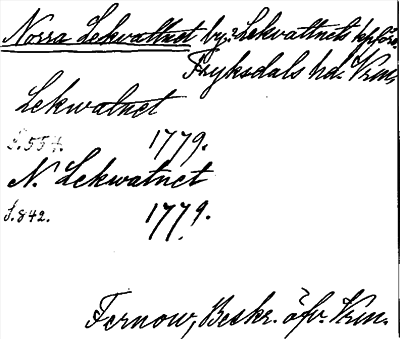 Norra Lekvattnet by: Lekvattnets kpför.
Fryksdals hd. Vrm.
Lekwatnet
S. 554. 1779.
N. Lekwatnet
S. 842. 1779.
Fernow, Beskr. öfv. Vrm.